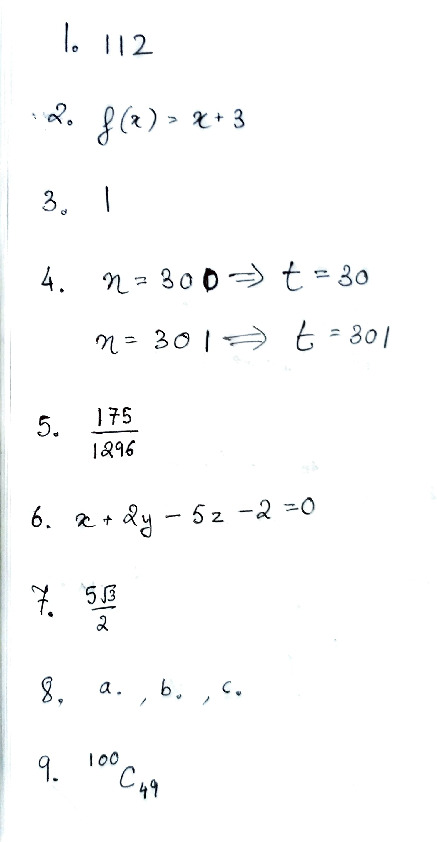 1. 112
2. f(x) = x + 3
3. 1
4. n = 300 ⇒ t = 30
n = 301 ⇒ t = 301
5. 175/1296
6. x + 2y - 5z - 2 = 0
7. 5√3/2
8. a. , b. , c.
9. ¹⁰⁰C₄₉